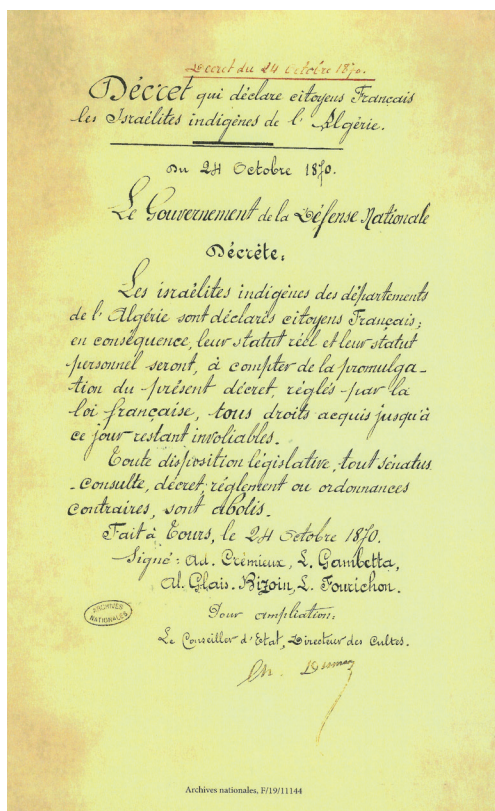 Décret du 24 Octobre 1870.
Décret qui déclare citoyens Français
les Israëlites indigènes de l'Algérie.
Du 24 Octobre 1870.
Le Gouvernement de la Défense Nationale
Décrète:
Les israëlites indigènes des départements
de l'Algérie sont déclarés citoyens Français;
en conséquence, leur statut réel et leur statut
personnel seront, à compter de la promulga-
tion du présent décret, réglés par la
loi française, tous droits acquis jusqu'à
ce jour restant inviolables.
Toute disposition législative, tout sénatus
-consulte, décret, réglement ou ordonnances
contraires, sont abolis.
Fait à Tours, le 24 Octobre 1870.
Signé: Ad. Crémieux, L. Gambetta,
Al. Glais-Bizoin, L. Fourichon.
Pour ampliation:
Le Conseiller d'Etat, Directeur des Cultes.
ARCHIVES
NATIONALES
Archives nationales, F/19/11144